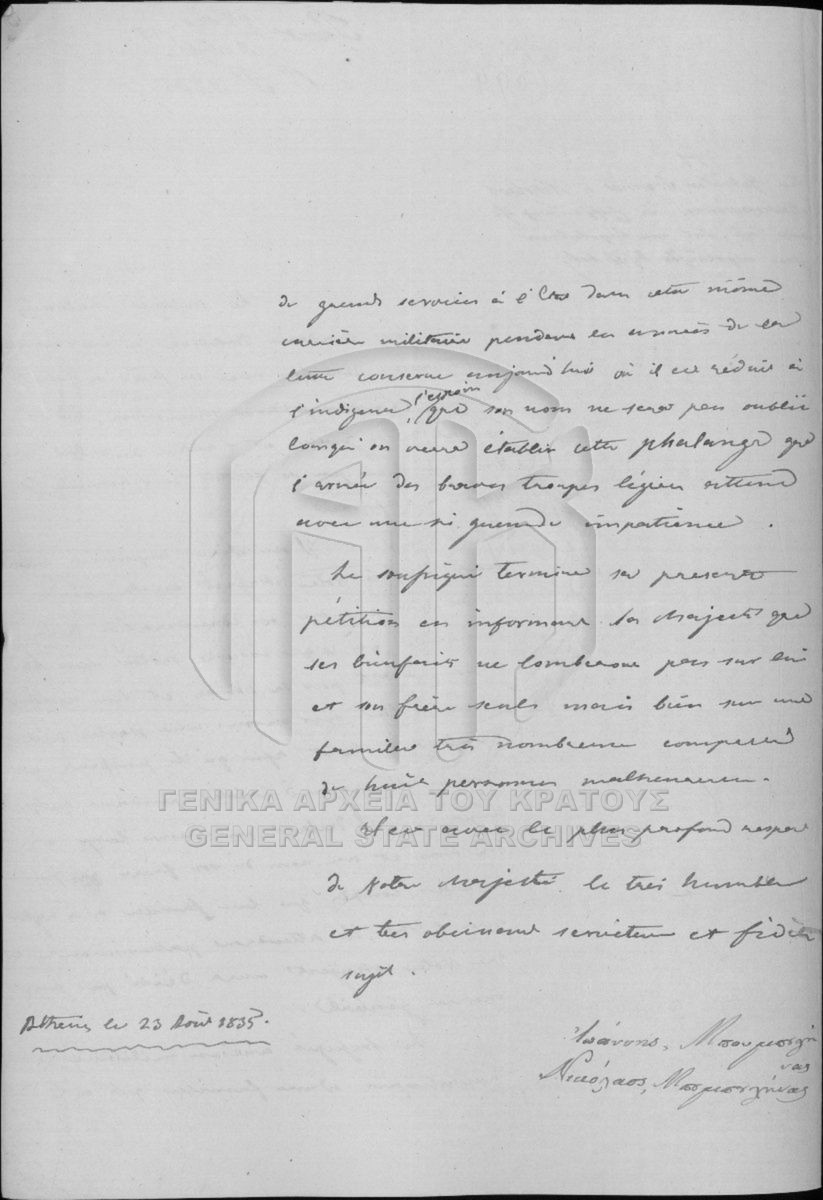 de grands services à l'Etat dans cette même
carrière militaire pendant les années de la
lutte conserve aujourd'hui où il est réduit à
l'indigence, l'espoir que son nom ne sera pas oublié
lorsqu'on verra établir cette phalange que
l'armée des braves troupes légères attend
avec une si grande impatience.
Le soussigné termine sa presente
pétition en informant Sa Majesté que
ses bienfaits ne tomberont pas sur lui
et son frère seuls mais bien sur une
famille très nombreuse composée
de huit personnes malheureuses.
Il est avec le plus profond respect
de Votre Majesté le très humble
et très obéissant serviteur et fidèle
sujet.
Athènes le 23 Août 1835.
Ἰωάννης, Μπουμπουλή
νας
Νικόλαος, Μπουμπουλήνας
ΓΕΝΙΚΑ ΑΡΧΕΙΑ ΤΟΥ ΚΡΑΤΟΥΣ
GENERAL STATE ARCHIVES